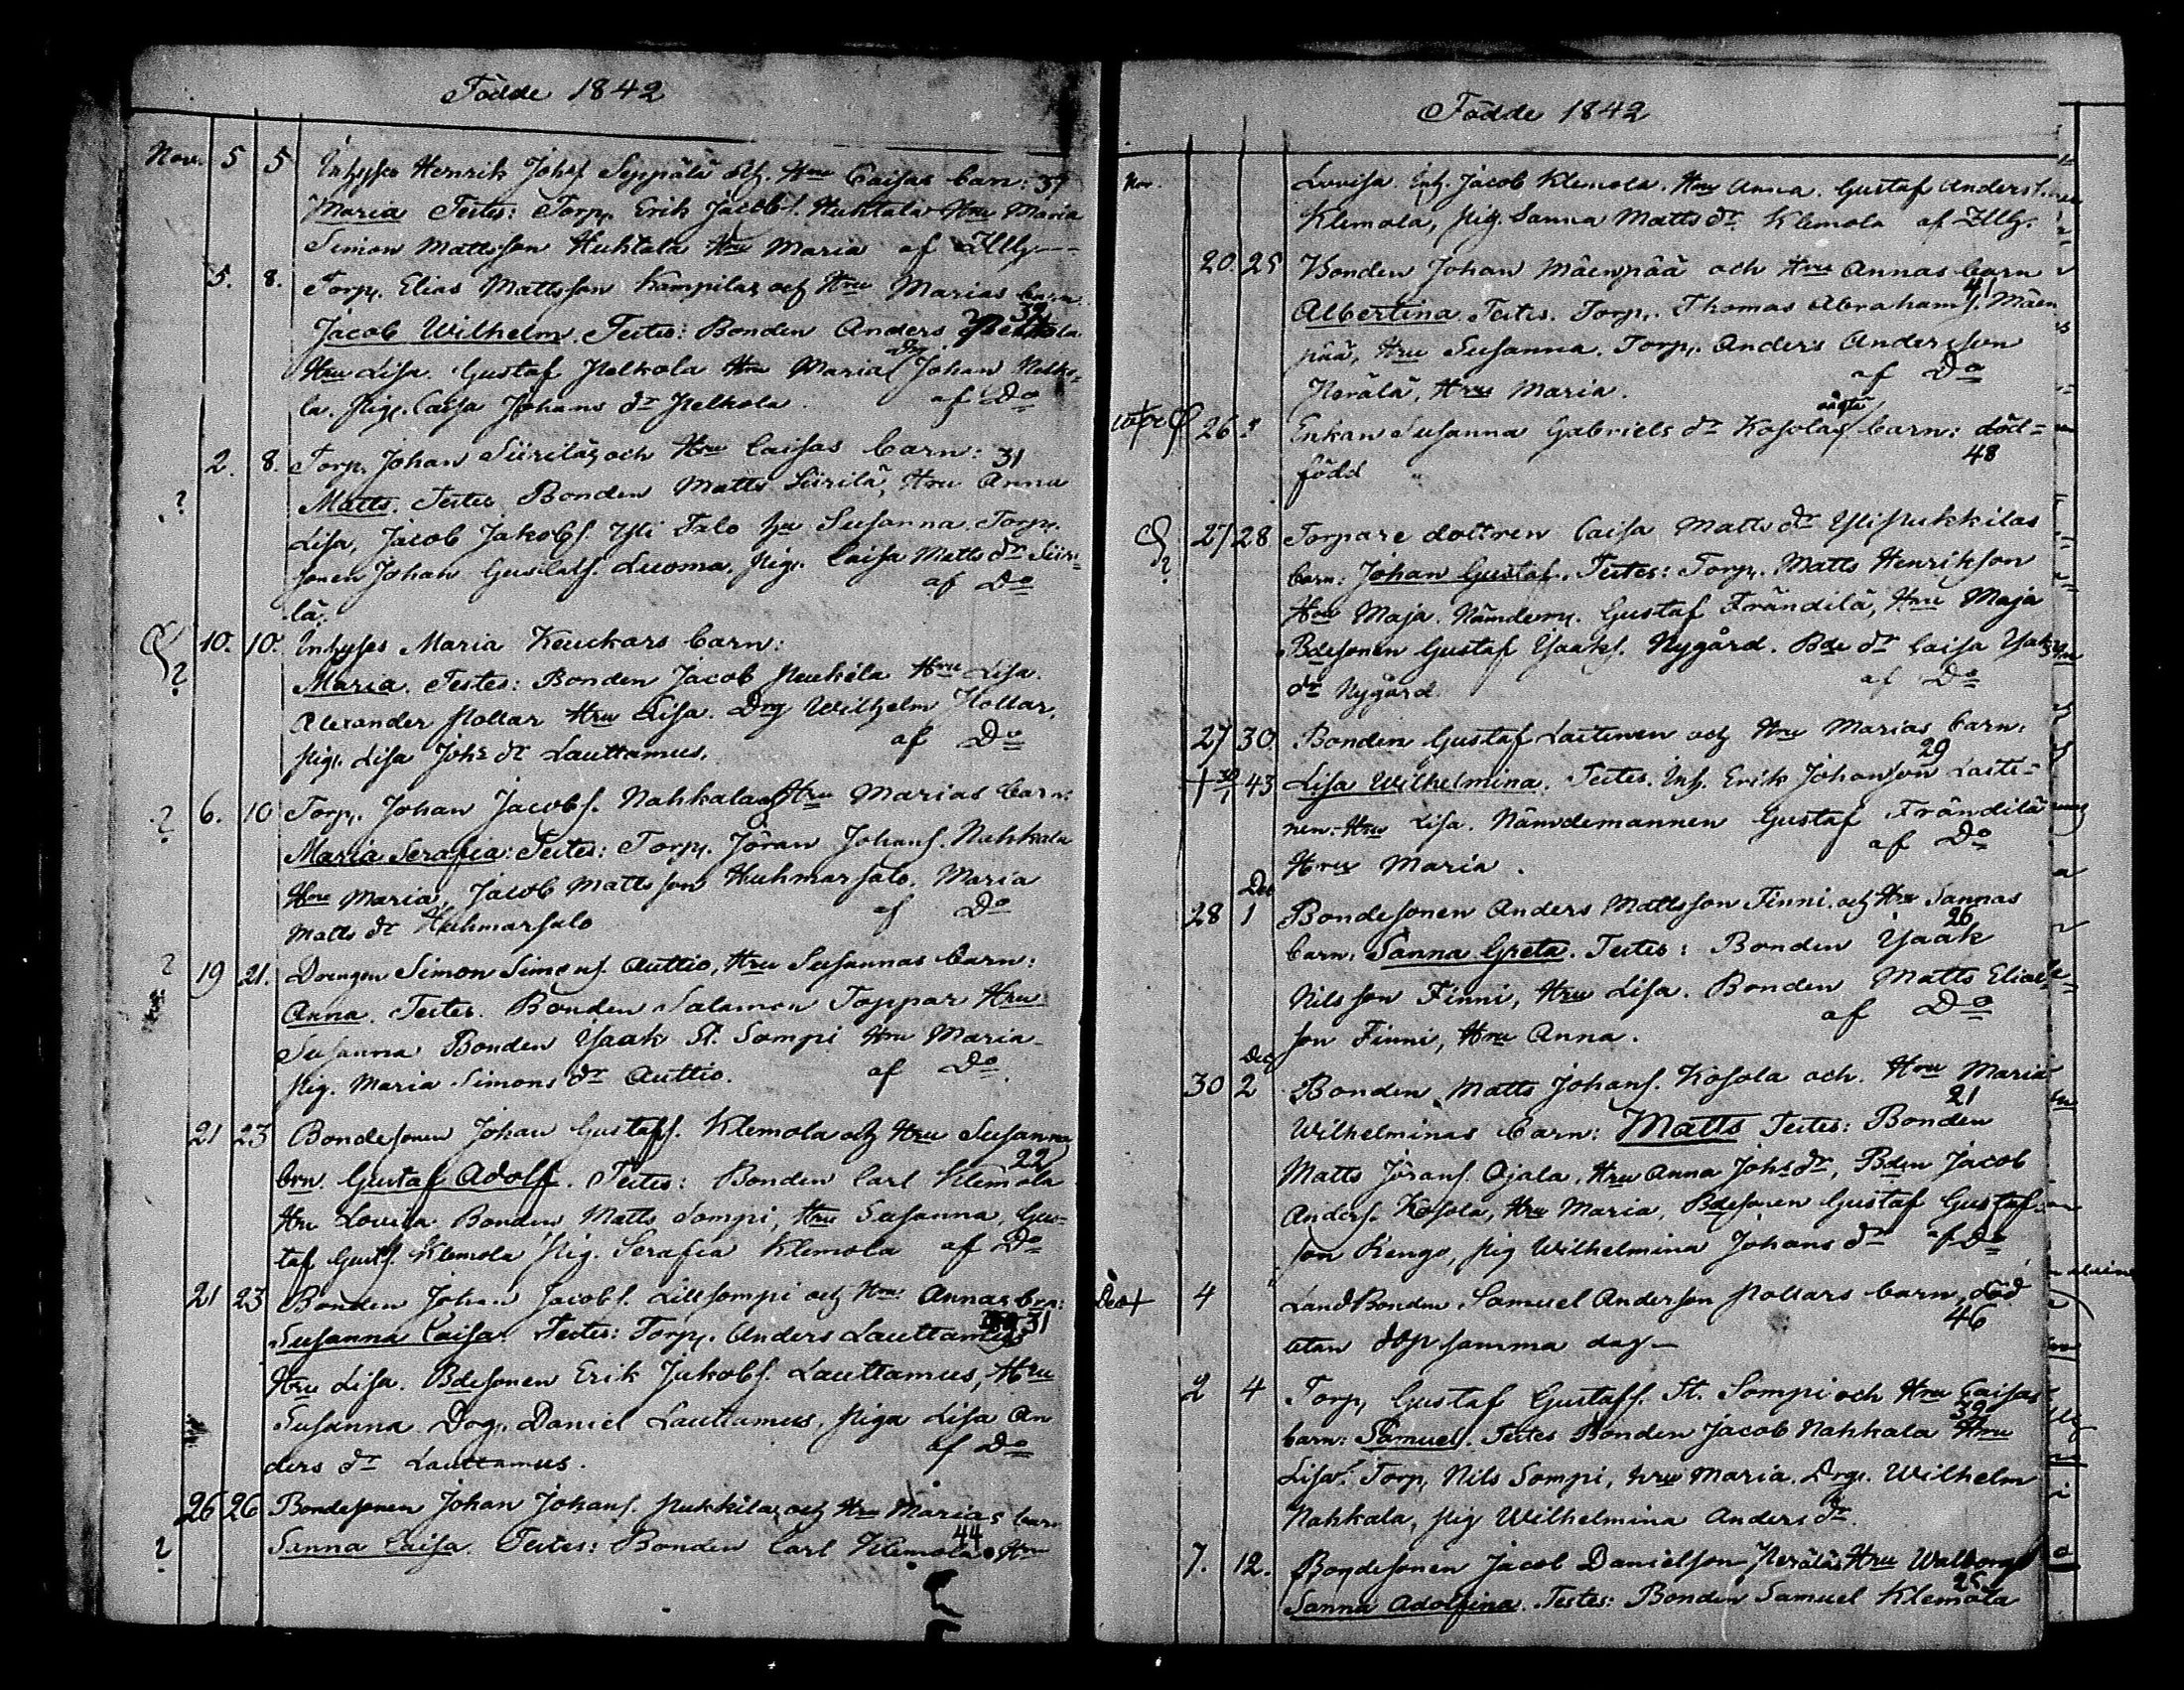 Födde 1842
Nov. 5 5 Inhyses Henrik Johsf Seppälä och Hru Caisas barn: 37
Maria Testes: Torp. Erik Jacobs. Huhtala Hru Maria
Simon Mattsson Huhtala Hru Maria af Illby
5. 8. Torp. Elias Mattsson Kampilas och Hru Marias barn
32
Jacob Wilhelm. Testes: Bonden Anders
Hru Lisa. Gustaf Pelkola Hru Maria Drg Johan Pelko-
la. Pig. Caisa Johans dr Pelkola. af Do
2. 8. Torp. Johan Siiriläs och Hru Caisas barn: 31
? Matts. Testes Bonden Matts Siirilä, Hru Anna
Lisa, Jacob Jakobs. Yli Talo hu Susanna Torp.
sonen Johan Gustafs. Luoma. Pig. Caisa Matts dr Siiri-
lä. af Do
10. 10. Inhyses Maria Keuckars barn:
? Maria. Testes: Bonden Jacob Peukila Hru Lisa.
Alexander Pollar Hru Lisa. Drg Wilhelm Pollar.
Pig. Lisa Johs dr Lauttamus. af Do
? 6. 10 Torp. Johan Jacobs. Nahkala och Hru Marias barn:
Maria Serafia: Testes: Torp. Jöran Johans. Nahkala
Hru Maria, Jacob Mattsson Huhmarsalo. Maria
Matts dr Huhmarsalo af Do
? 19 21. Drengen Simon Simons. Auttio, Hru Susannas barn:
Anna. Testes. Bonden Salamon Toppar Hru
Susanna Bonden Isaak St. Sompi Hru Maria
Pig. Maria Simons dr Auttio. af Do
21 23 Bondesonen Johan Gustafs. Klemola och Hru Susannas
22
brn. Gustaf Adolf. Testes: Bonden Carl Klemola
Hru Lovisa Bonden Matts Sompi, Hru Susanna, Gus-
taf Gusts. Klemola Pig. Serafia Klemola af Do
21 23 Bonden Johan Jacobs. Lillsompi och Hru Annas brn:
31
Susanna Caisa. Testes: Torp. Anders Lauttamus
Hru Lisa. Bdesonen Erik Jakobs. Lauttamus, Hru
Susanna Dog. Daniel Lauttamus, Piga Lisa An
ders dr Lauttamus. af Do
26 26 Bondesonen Johan Johans. Pukkilas och Hru Marias barn
44
? Sanna Caisa. Testes: Bonden Carl Klemola Hru
Födde 1842
Nov. Lovisa Inh. Jacob Klemola. Hru Anna. Gustaf Anders
Klemola, Pig. Sanna Matts dr Klemola af Illby.
20. 25 Bonden Johan Mäenpää och Hru Annas barn
41
Albertina. Testes. Torp. Thomas Abrahams. Mäen
pää, Hru Susanna. Torp. Anders Andersson
Perälä, Hru Maria. af Do
26 Enkan Susanna Gabriels dr Kosolas oägta barn: död-
född 48
? 27 28 Torpare dottren Caisa Matts dr Ylipukkilas
barn: Johan Gustaf. Testes: Torp. Matts Henrikson
Hru Maja. Nämdem. Gustaf Frändilä, Hru Maja
Bdesonen Gustaf Isaaks. Nygård. Bde dr Caisa Isaks
dr Nygård. af Do
27 30 Bonden Gustaf Laitinen och Hru Marias barn:
29
43 Lisa Wilhelmina. Testes. Inh. Erik Johanson Laiti-
nen. Hru Lisa. Nämdemannen Gustaf Frändilä
Hru Maria. af Do
Dec
28 1 Bondesonen Anders Mattsson Finni, och Hru Sannas
26
barn: Sanna Greta. Testes: Bonden Isaak
Nilsson Finni, Hru Lisa. Bonden Matts Elias-
son Finni, Hru Anna. af Do
Dec
30 2 Bonden Matts Johans. Kosola och Hru Maria
21
Wilhelminas barn: Matts Testes: Bonden
Matts Jörans. Ojala, Hru Anna Johs dr, Bden Jacob
Anders. Kosola, Hru Maria, Bdesonen Gustaf Gustaf-
son Rengo, Pig Wilhelmina Johans dr af Do
Dec + 4 Landbonden Samuel Anderson Pollars barn död
46
utan dop samma dag —
2 4 Torp, Gustaf Gustafs. St. Sompi och Hru Caisas
39
barn: Samuel. Testes Bonden Jacob Nahkala Hru
Lisa. Torp, Nils Sompi, hru Maria. Drg. Wilhelm
Nahkala, Pig Wilhelmina Anders dr.
7. 12. Bondesonen Jacob Danielson Peräläs Hru Walborgs
25
Sanna Adolfina. Testes: Bonden Samuel Klemola